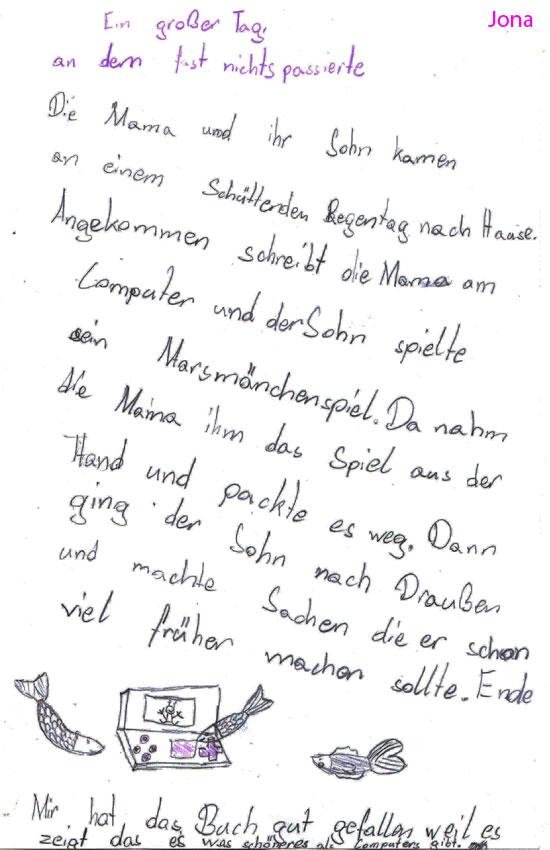 Jona
Ein großer Tag,
an dem fast nichts passierte
Die Mama und ihr Sohn kamen
an einem Schüttenden Regentag nach Haase.
Angekommen schreibt die Mama am
Computer und der Sohn spielte
sein Marsmänchenspiel. Da nahm
die Mama ihm das Spiel aus der
Hand und packte es weg. Dann
ging der Sohn nach Draußen
und machte Sachen die er schon
viel früher machen sollte. Ende
Mir hat das Buch gut gefallen weil es
zeigt das es was schöneres als Computers gibt.